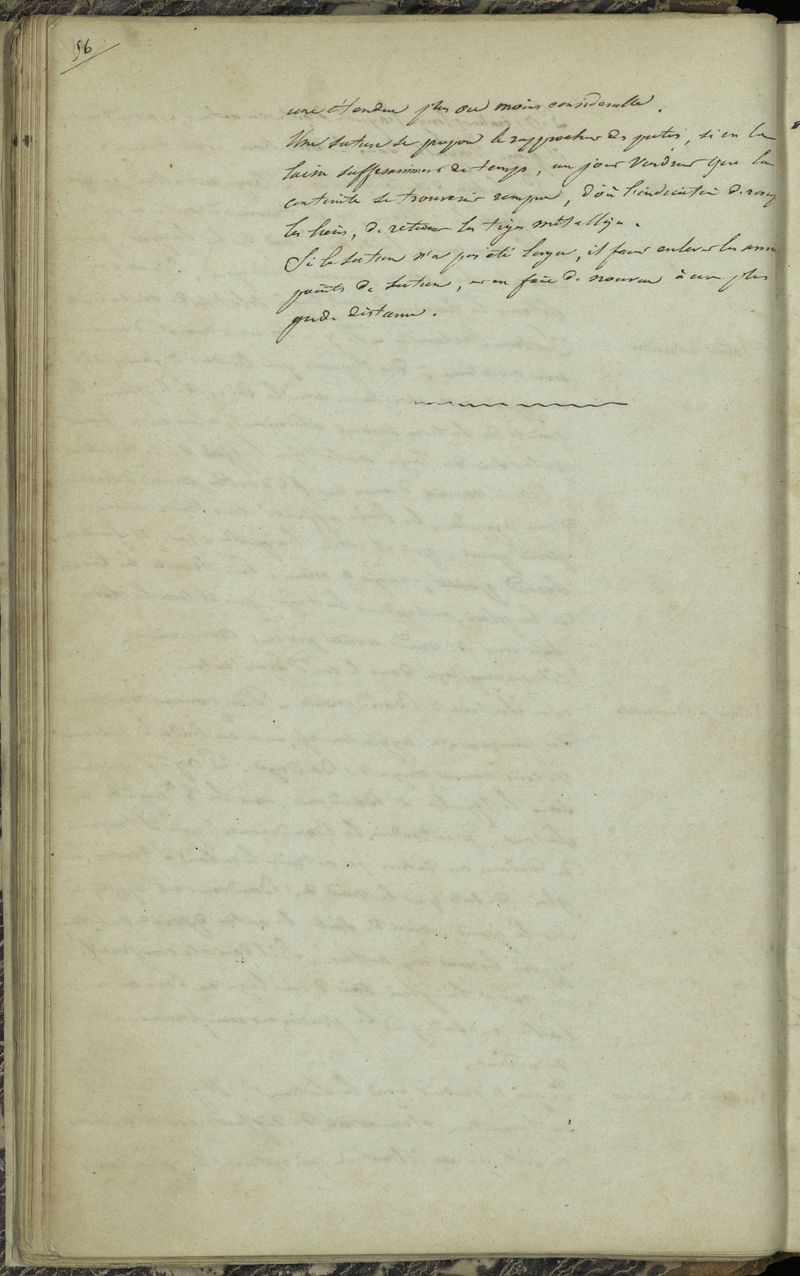 56
une étendue plus ou moins considerable.
Une suture se propose le rapprocher des parties, si on la
laisse suffisamment de temps, un jour viendrait que la
continuité se trouverait rompue, d'où l'indication de
les liens, de retirer les tiges métalliques.
Si la suture n'a pas été longue, il faut enlever les
points de suture, et en faire de nouveau à une plus
grde distance.